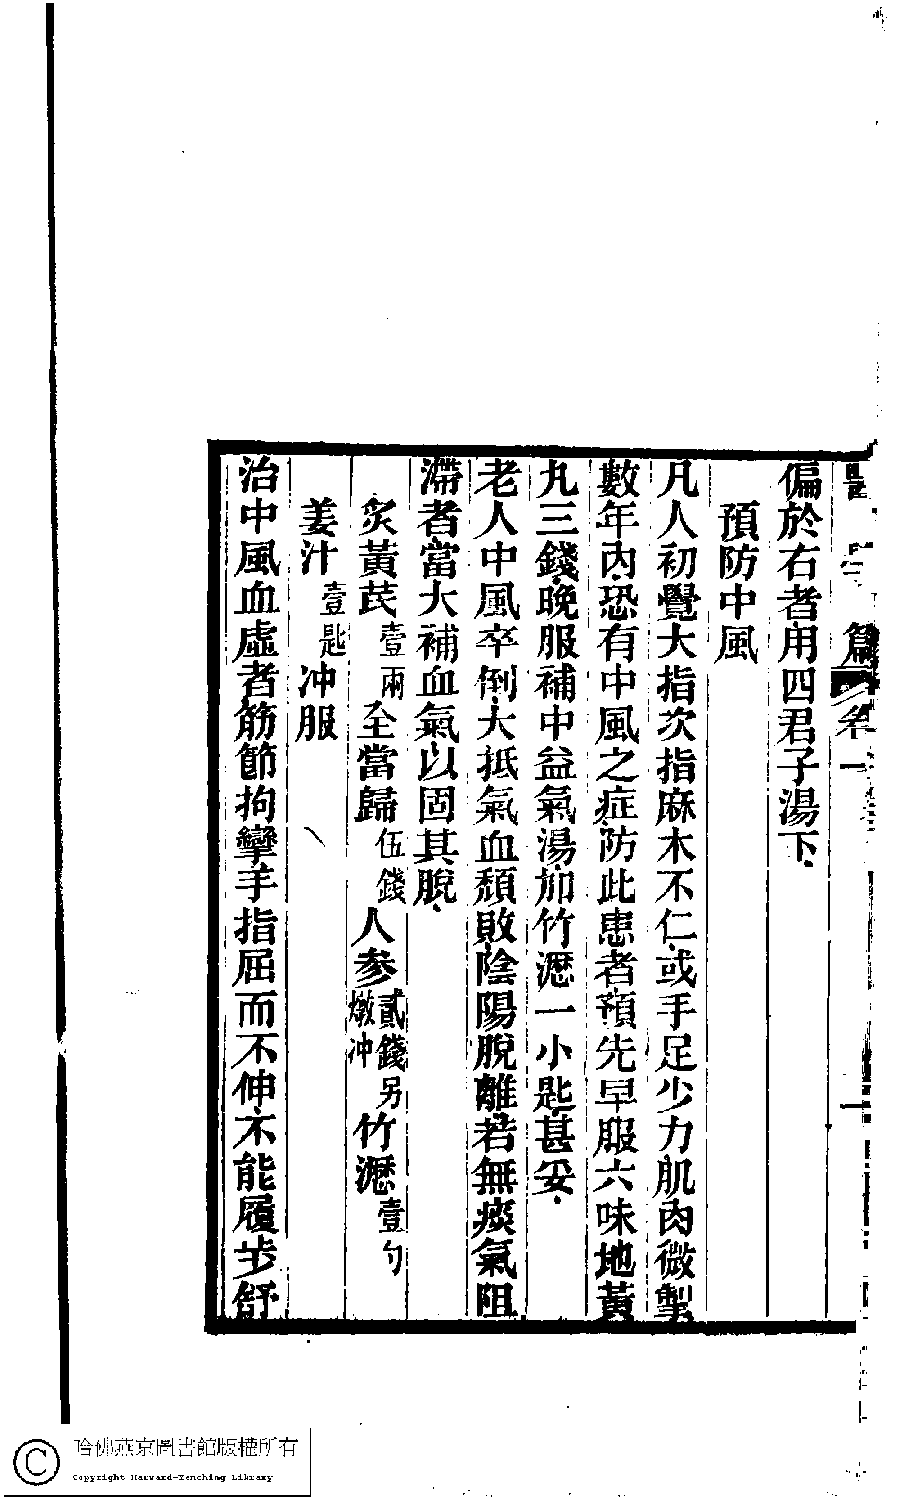 偏於右者用四君子湯下
預防中風
凡人初覺大指次指麻木不仁或手足少力肌肉微掣
數年內恐有中風之症防此患者預先早服六味地黃
丸三錢晚服補中益氣湯加竹瀝一小匙甚妥
老人中風卒倒大抵氣血頹敗陰陽脫離若無痰氣阻
滯者當大補血氣以固其脫
炙黃芪壹兩全當歸伍錢人參貳錢另燉冲竹瀝壹勺
姜汁壹匙冲服
治中風血虛者筋節拘攣手指屈而不伸不能履步舒
哈佛燕京圖書館版權所有
Copyright Harvard-Yenching Library